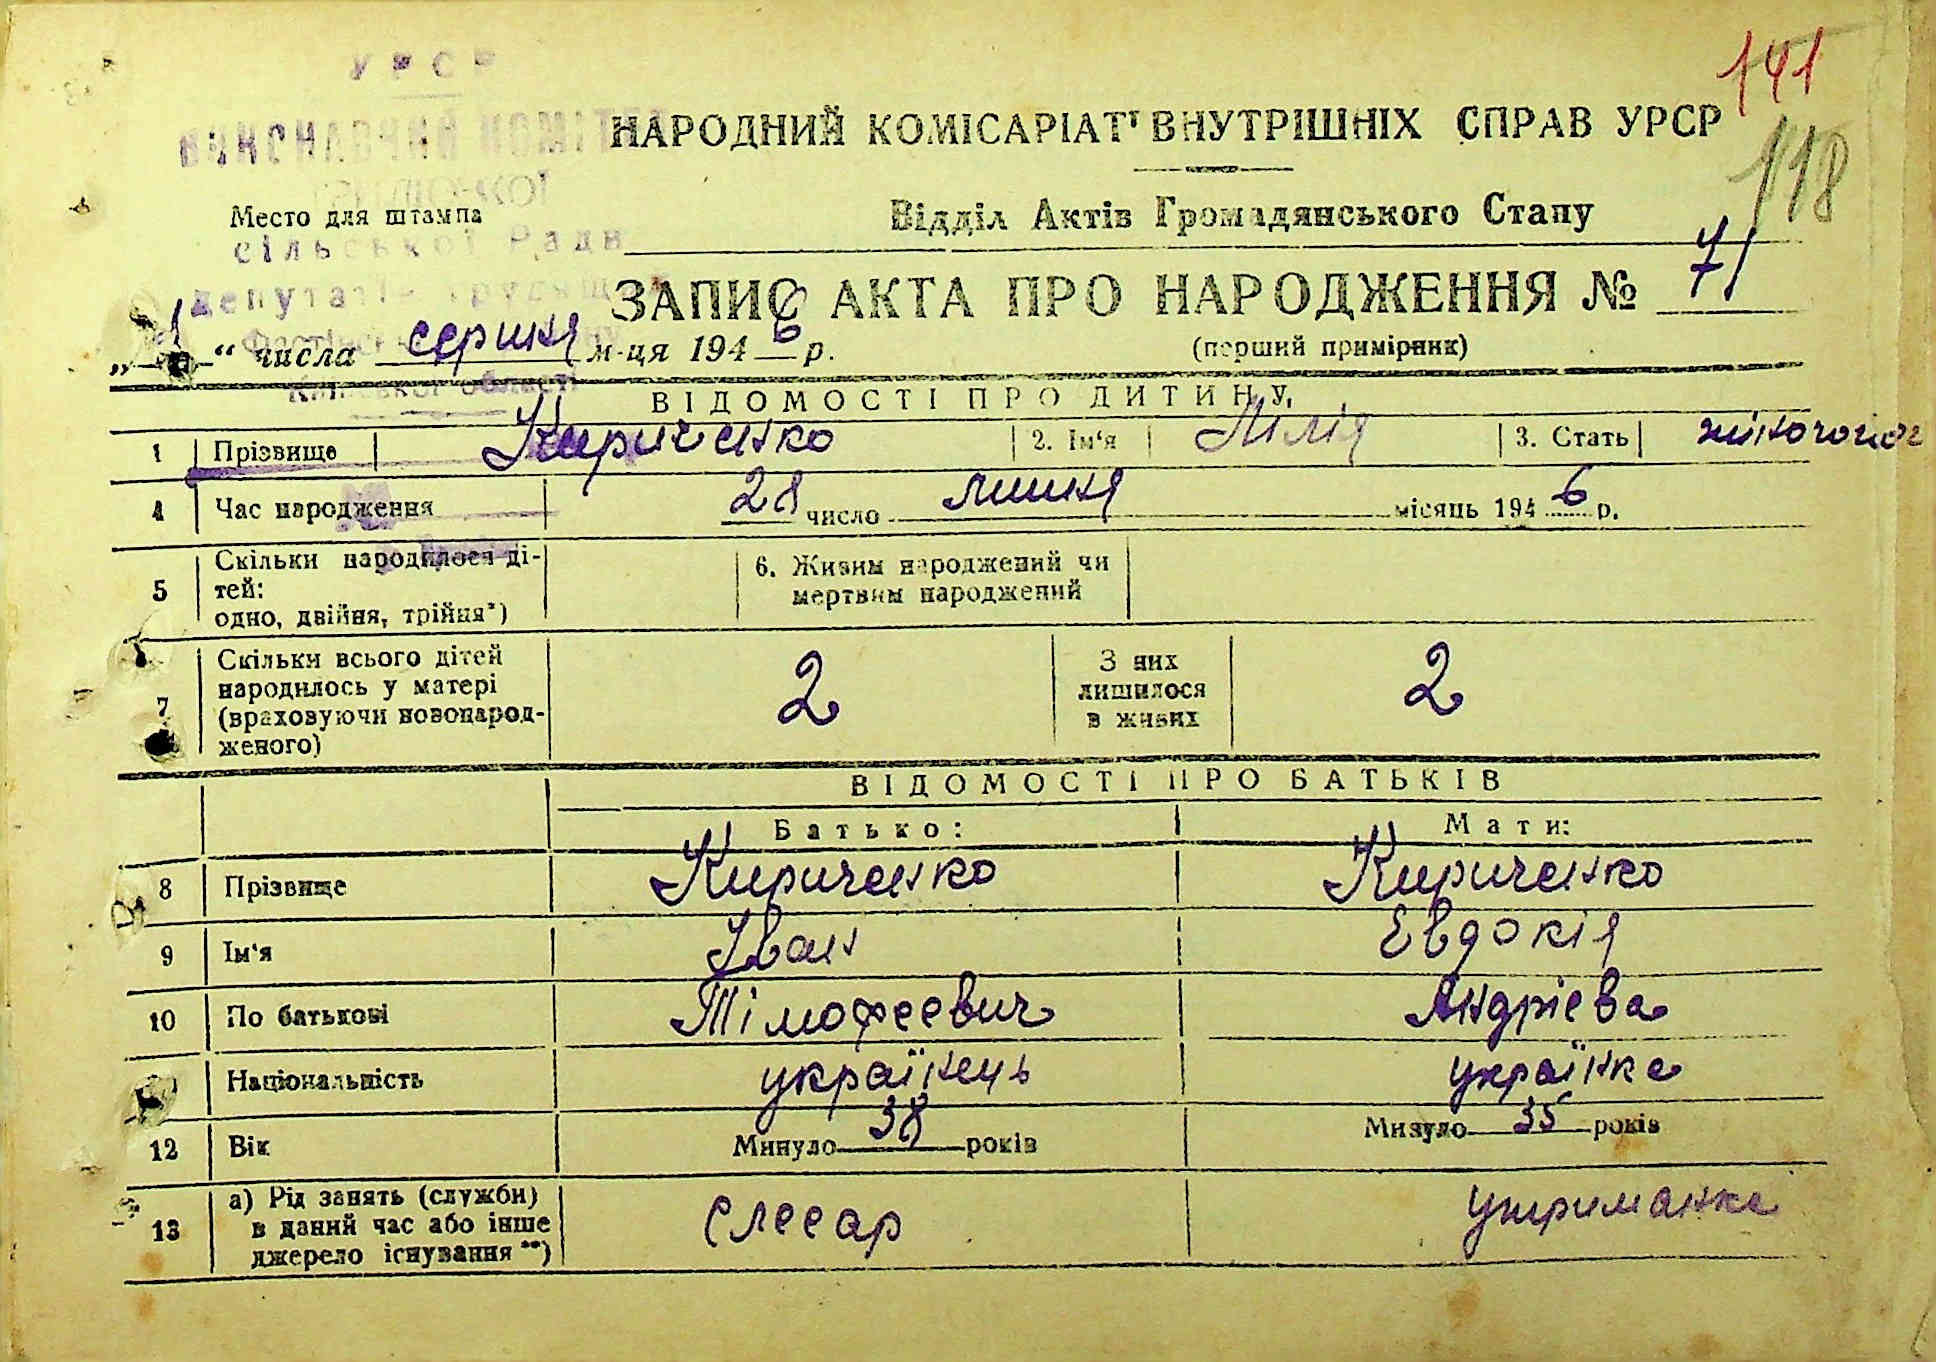 141
УРСР
ВИКОНАВЧИЙ КОМІТЕТ
НАРОДНИЙ КОМІСАРІАТ ВНУТРІШНІХ СПРАВ УРСР
118
Место для штампа
Відділ Актів Громадянського Стану
сільської Ради
депутатів трудящ
ЗАПИС АКТА ПРО НАРОДЖЕННЯ № 71
„1“ числа серпня м-ця 1946 р.
(перший примірник)
Київської області
ВІДОМОСТІ ПРО ДИТИНУ
1 Прізвище Кириченко 2. Ім‘я Лілія 3. Стать жіночого
4 Час народження 28 число липня місяць 1946 р.
5 Скільки народилося ді-
тей:
одно, двійня, трійня*)
6. Живим народжений чи
мертвим народжений
7 Скільки всього дітей
народилось у матері
(враховуючи новонарод-
женого)
2
З них
лишилося
в живих
2
ВІДОМОСТІ ПРО БАТЬКІВ
Батько: Мати:
8 Прізвище Кириченко Кириченко
9 Ім‘я Іван Евдокія
10 По батькові Тімофеевич Андріева
Національність українець українка
12 Вік Минуло 38 років Минуло 35 років
13 а) Рід занять (служби)
в даний час або інше
джерело існування **)
слесар утриманка